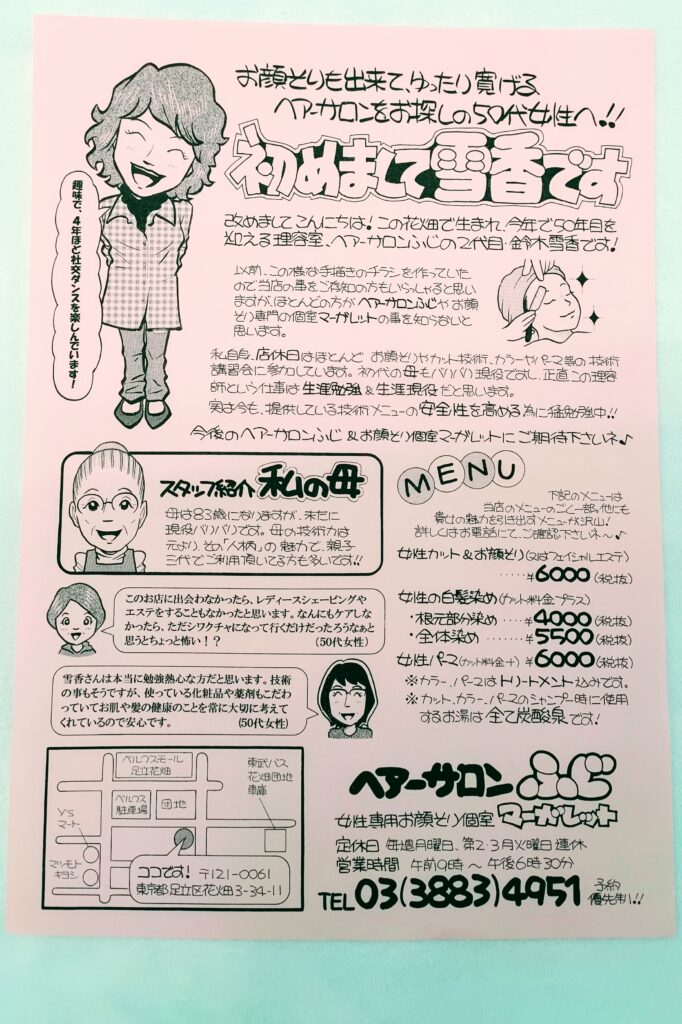 お顔そりも出来て、ゆったり寛げる
ヘアーサロンをお探しの50代女性へ!!
初めまして雪香です
趣味で、4年ほど社交ダンスを楽しんでいます!
改めましてこんにちは!この花畑で生まれ、今年で50年目を
迎える理容室、ヘアーサロンふじの2代目・鈴木雪香です!
以前、この様な手描きのチラシを作っていた
ので当店の事をご存知の方もいらっしゃると思い
ますが、ほとんどの方がヘアーサロンふじやお顔
そり専門の個室マーガレットの事を知らないと
思います。
私自身、店休日はほとんどお顔そりやカット技術、カラーやパーマ等の技術
講習会に参加しています。初代の母もバリバリ現役ですし、正直この理容
師という仕事は生涯勉強&生涯現役だと思います。
実は今も、提供している技術メニューの安全性を高める為に猛勉強中!!
今後のヘアーサロンふじ&お顔そり個室マーガレットにご期待下さいネ♪
スタッフ紹介 私の母
母は83歳になりますが、未だに
現役バリバリです。母の技術力は
元より、その「人柄」の魅力で、親子
三代でご利用頂いてる方も多いです!!
このお店に出会わなかったら、レディースシェービングや
エステをすることもなかったと思います。なんにもケアしな
かったら、ただシワクチャになって行くだけだったろうなぁと
思うとちょっと怖い!? (50代女性)
雪香さんは本当に勉強熱心な方だと思います。技術
の事もそうですが、使っている化粧品や薬剤もこだわ
っていてお肌や髪の健康のことを常に大切に考えて
くれているので安心です。 (50代女性)
MENU
下記のメニューは
当店のメニューのごく一部。他にも
貴女の魅力を引き出すメニューが沢山!
詳しくはお電話にて、ご確認下さいネ〜♪
女性カット&お顔そり(又はフェイシャルエステ)
・・・・・¥6000(税抜)
女性の白髪染め(カット料金プラス)
・根元部分染め・・・・¥4000(税抜)
・全体染め・・・・・・¥5500(税抜)
女性パーマ(カット料金+)¥6000(税抜)
※カラー、パーマはトリートメント込みです。
※カット、カラー、パーマのシャンプー時に使用
するお湯は全て炭酸泉です!
ベルクスモール
足立花畑
東武バス
花畑団地
車庫
ベルクス
駐車場
団地
Y's
マート
マツモト
キヨシ
ココです! 〒121-0061
東京都足立区花畑3-34-11
ヘアーサロンふじ
女性専用お顔そり個室マーガレット
定休日 毎週月曜日、第2・3火曜日連休
営業時間 午前9時〜午後6時30分
TEL03(3883)4951 予約
優先制!!